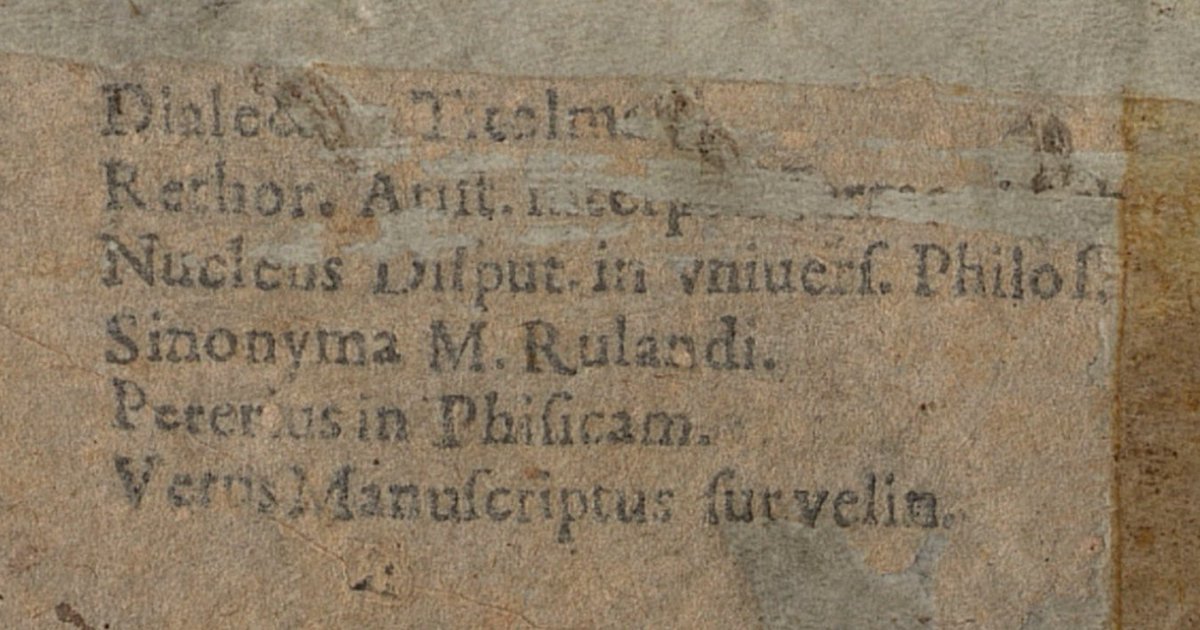 Titelm
Rethor. Arist.
Nucleus Diſput. in vniuerſ. Philoſ.
Sinonyma M. Rulandi.
Pererius in Phiſicam.
Vetus Manuſcriptus ſur velin.